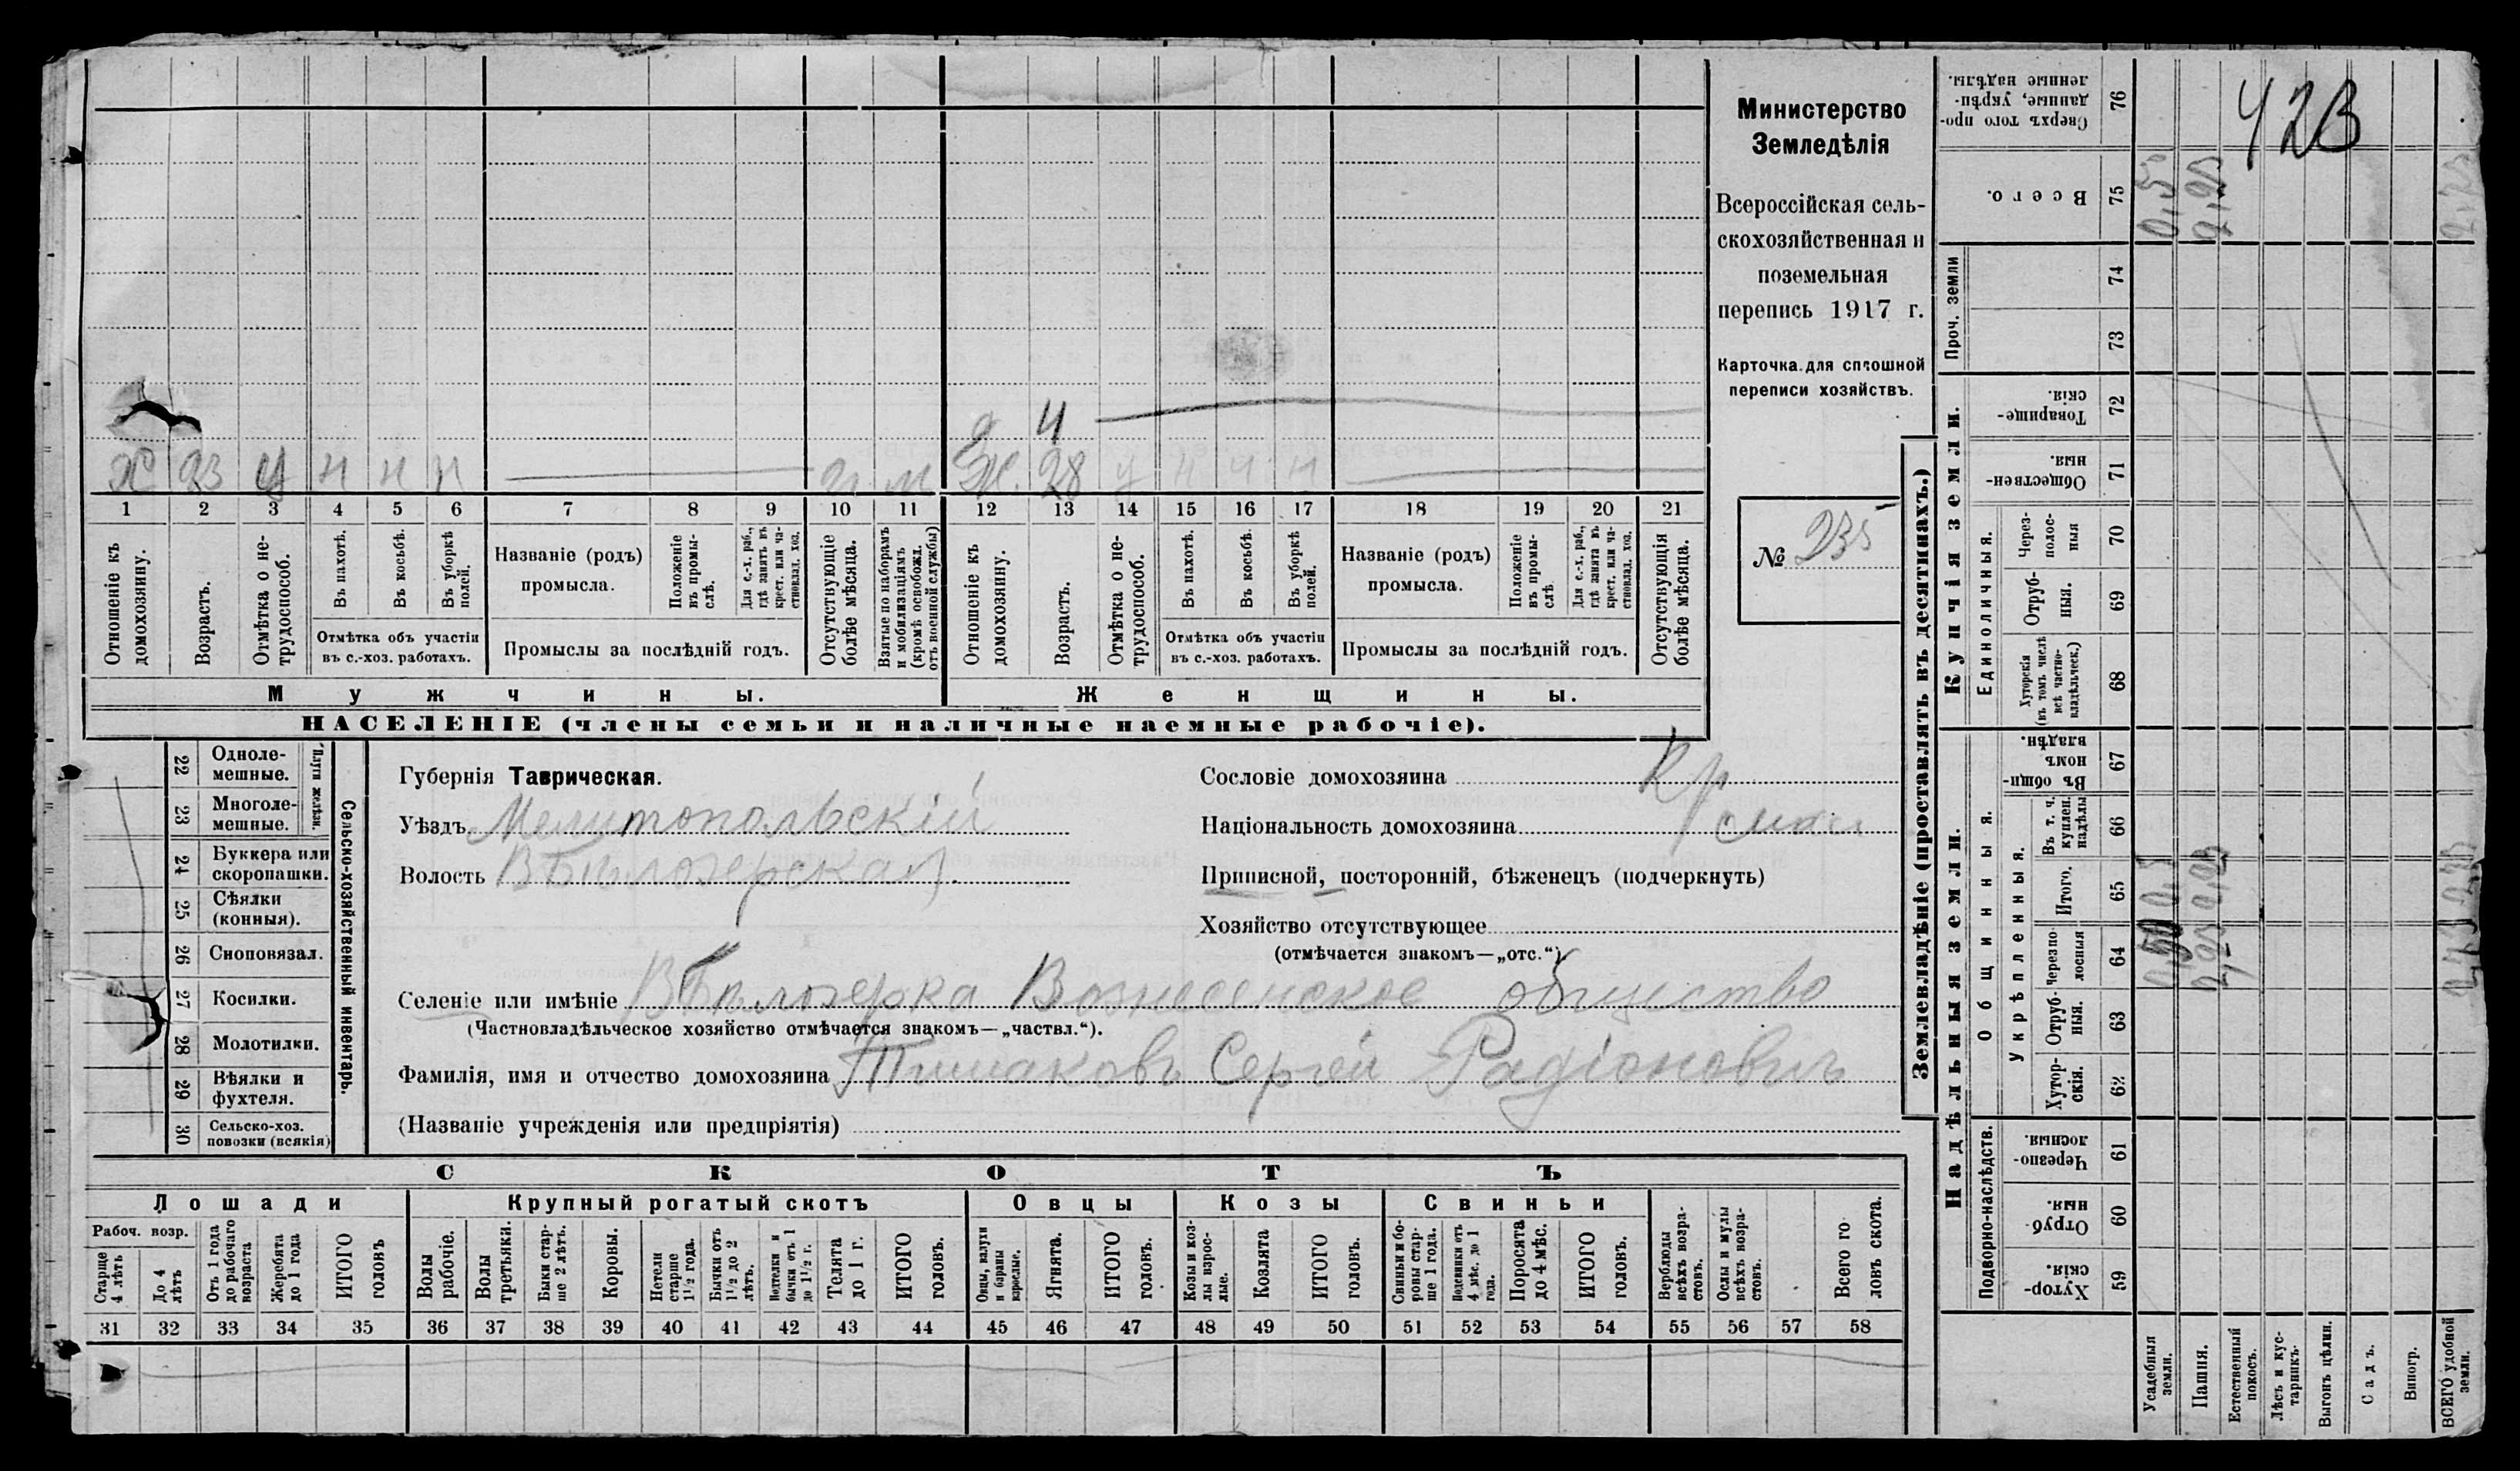 Министерство
Земледѣлія
Всероссійская сель-
скохозяйственная и
поземельная
перепись 1917 г.
Карточка для сплошной
переписи хозяйствъ.
№ 235
423
4
Х 23 н н н
Ж. 28 н н
1 2 3 4 5 6 7 8 9 10 11 12 13 14 15 16 17 18 19 20 21
Отношеніе къ домохозяину.
Возрастъ.
Отмѣтка о не-трудоспособ.
Въ пахотѣ.
Въ косьбѣ.
Въ уборкѣ полей.
Отмѣтка объ участіи
въ с.-хоз. работахъ.
Названіе (родъ)
промысла.
Положеніе въ промы-слѣ.
Для с.-х. раб., гдѣ занятъ въ крест. или ча-стновлад. хоз.
Промыслы за послѣдній годъ.
Отсутствующіе болѣе мѣсяца.
Взятые по наборамъ и мобилизаціямъ (кромѣ освобожд. отъ военной службы)
Отношеніе къ домохозяину.
Возрастъ.
Отмѣтка о не-трудоспособ.
Въ пахотѣ.
Въ косьбѣ.
Въ уборкѣ полей.
Отмѣтка объ участіи
въ с.-хоз. работахъ.
Названіе (родъ)
промысла.
Положеніе въ промы-слѣ
Для с.-х. раб., гдѣ занята въ крест. или ча-стновлад. хоз.
Промыслы за послѣдній годъ.
Отсутствующія болѣе мѣсяца.
Мужчины.
Женщины.
НАСЕЛЕНІЕ (члены семьи и наличные наемные рабочіе).
22 Одноле-мешные.
23 Многоле-мешные.
Плуги желѣзн.
24 Буккера или скоропашки.
25 Сѣялки (конныя).
26 Сноповязал.
27 Косилки.
28 Молотилки.
29 Вѣялки и фухтеля.
30 Сельско-хоз. повозки (всякія)
Сельско-хозяйственный инвентарь.
Губернія Таврическая.
Уѣздъ Мелитопольскій
Волость Бѣлозерская
Сословіе домохозяина Кр
Національность домохозяина
Приписной, посторонній, бѣженецъ (подчеркнуть)
Хозяйство отсутствующее
(отмѣчается знакомъ—„отс.“).
Селеніе или имѣніе Бѣлозерка Вознесенское общество
(Частновладѣльческое хозяйство отмѣчается знакомъ—„частвл.“).
Фамилія, имя и отчество домохозяина Тимаковъ Сергѣй Радіоновичъ
(Названіе учрежденія или предпріятія)
СКОТЪ
Лошади Крупный рогатый скотъ Овцы Козы Свиньи
Рабоч. возр.
Старше 4 лѣтъ
До 4 лѣтъ
Отъ 1 года до рабочаго возраста
Жеребята до 1 года
ИТОГО головъ
Волы рабочіе.
Волы третьяки.
Быки стар-ше 2 лѣтъ.
Коровы.
Нетели старше 1½ года.
Бычки отъ 1½ до 2 лѣтъ.
Подтелки и бычки отъ 1 до 1½ г.
Телята до 1 г.
ИТОГО головъ.
Овцы, валухи и бараны взрослые.
Ягнята.
ИТОГО головъ.
Козы и коз-лы взрос-лые.
Козлята
ИТОГО головъ.
Свиньи и бо-ровы стар-ше 1 года.
Подсвинки отъ 4 мѣс. до 1 года.
Поросята до 4 мѣс.
ИТОГО головъ.
Верблюды всѣхъ возра-стовъ.
Ослы и мулы всѣхъ возра-стовъ.
Всего го-ловъ скота.
31 32 33 34 35 36 37 38 39 40 41 42 43 44 45 46 47 48 49 50 51 52 53 54 55 56 57 58
Землевладѣніе (проставлять въ десятинахъ.)
Сверхъ того про-данные, укрѣп-ленные надѣлы. 76
Всего. 75
0,5
2,23
Проч. земли 74 73
Купчія земли.
Товарище-скія. 72
Обществен-ныя. 71
Единоличныя.
Через-полос-ныя 70
Отруб-ныя. 69
Хуторскія (въ томъ числѣ всѣ частно-владѣльческ.) 68
Надѣльныя земли.
Общинныя.
Въ общи-номъ владѣн. 67
Укрѣпленныя.
Въ т. ч. куплен. надѣлы 66
Итого. 65
Черезпо-лосныя 64
Отруб-ныя. 63
Хутор-скія. 62
Подворно-наслѣдств.
Черезпо-лосныя. 61
Отруб-ныя. 60
Хутор-скія. 59
Усадебныя земли.
Пашня.
Естественный покосъ.
Лѣсъ и кус-тарникъ.
Выгонъ цѣлин.
Садъ.
Виногр.
ВСЕГО удобной земли.